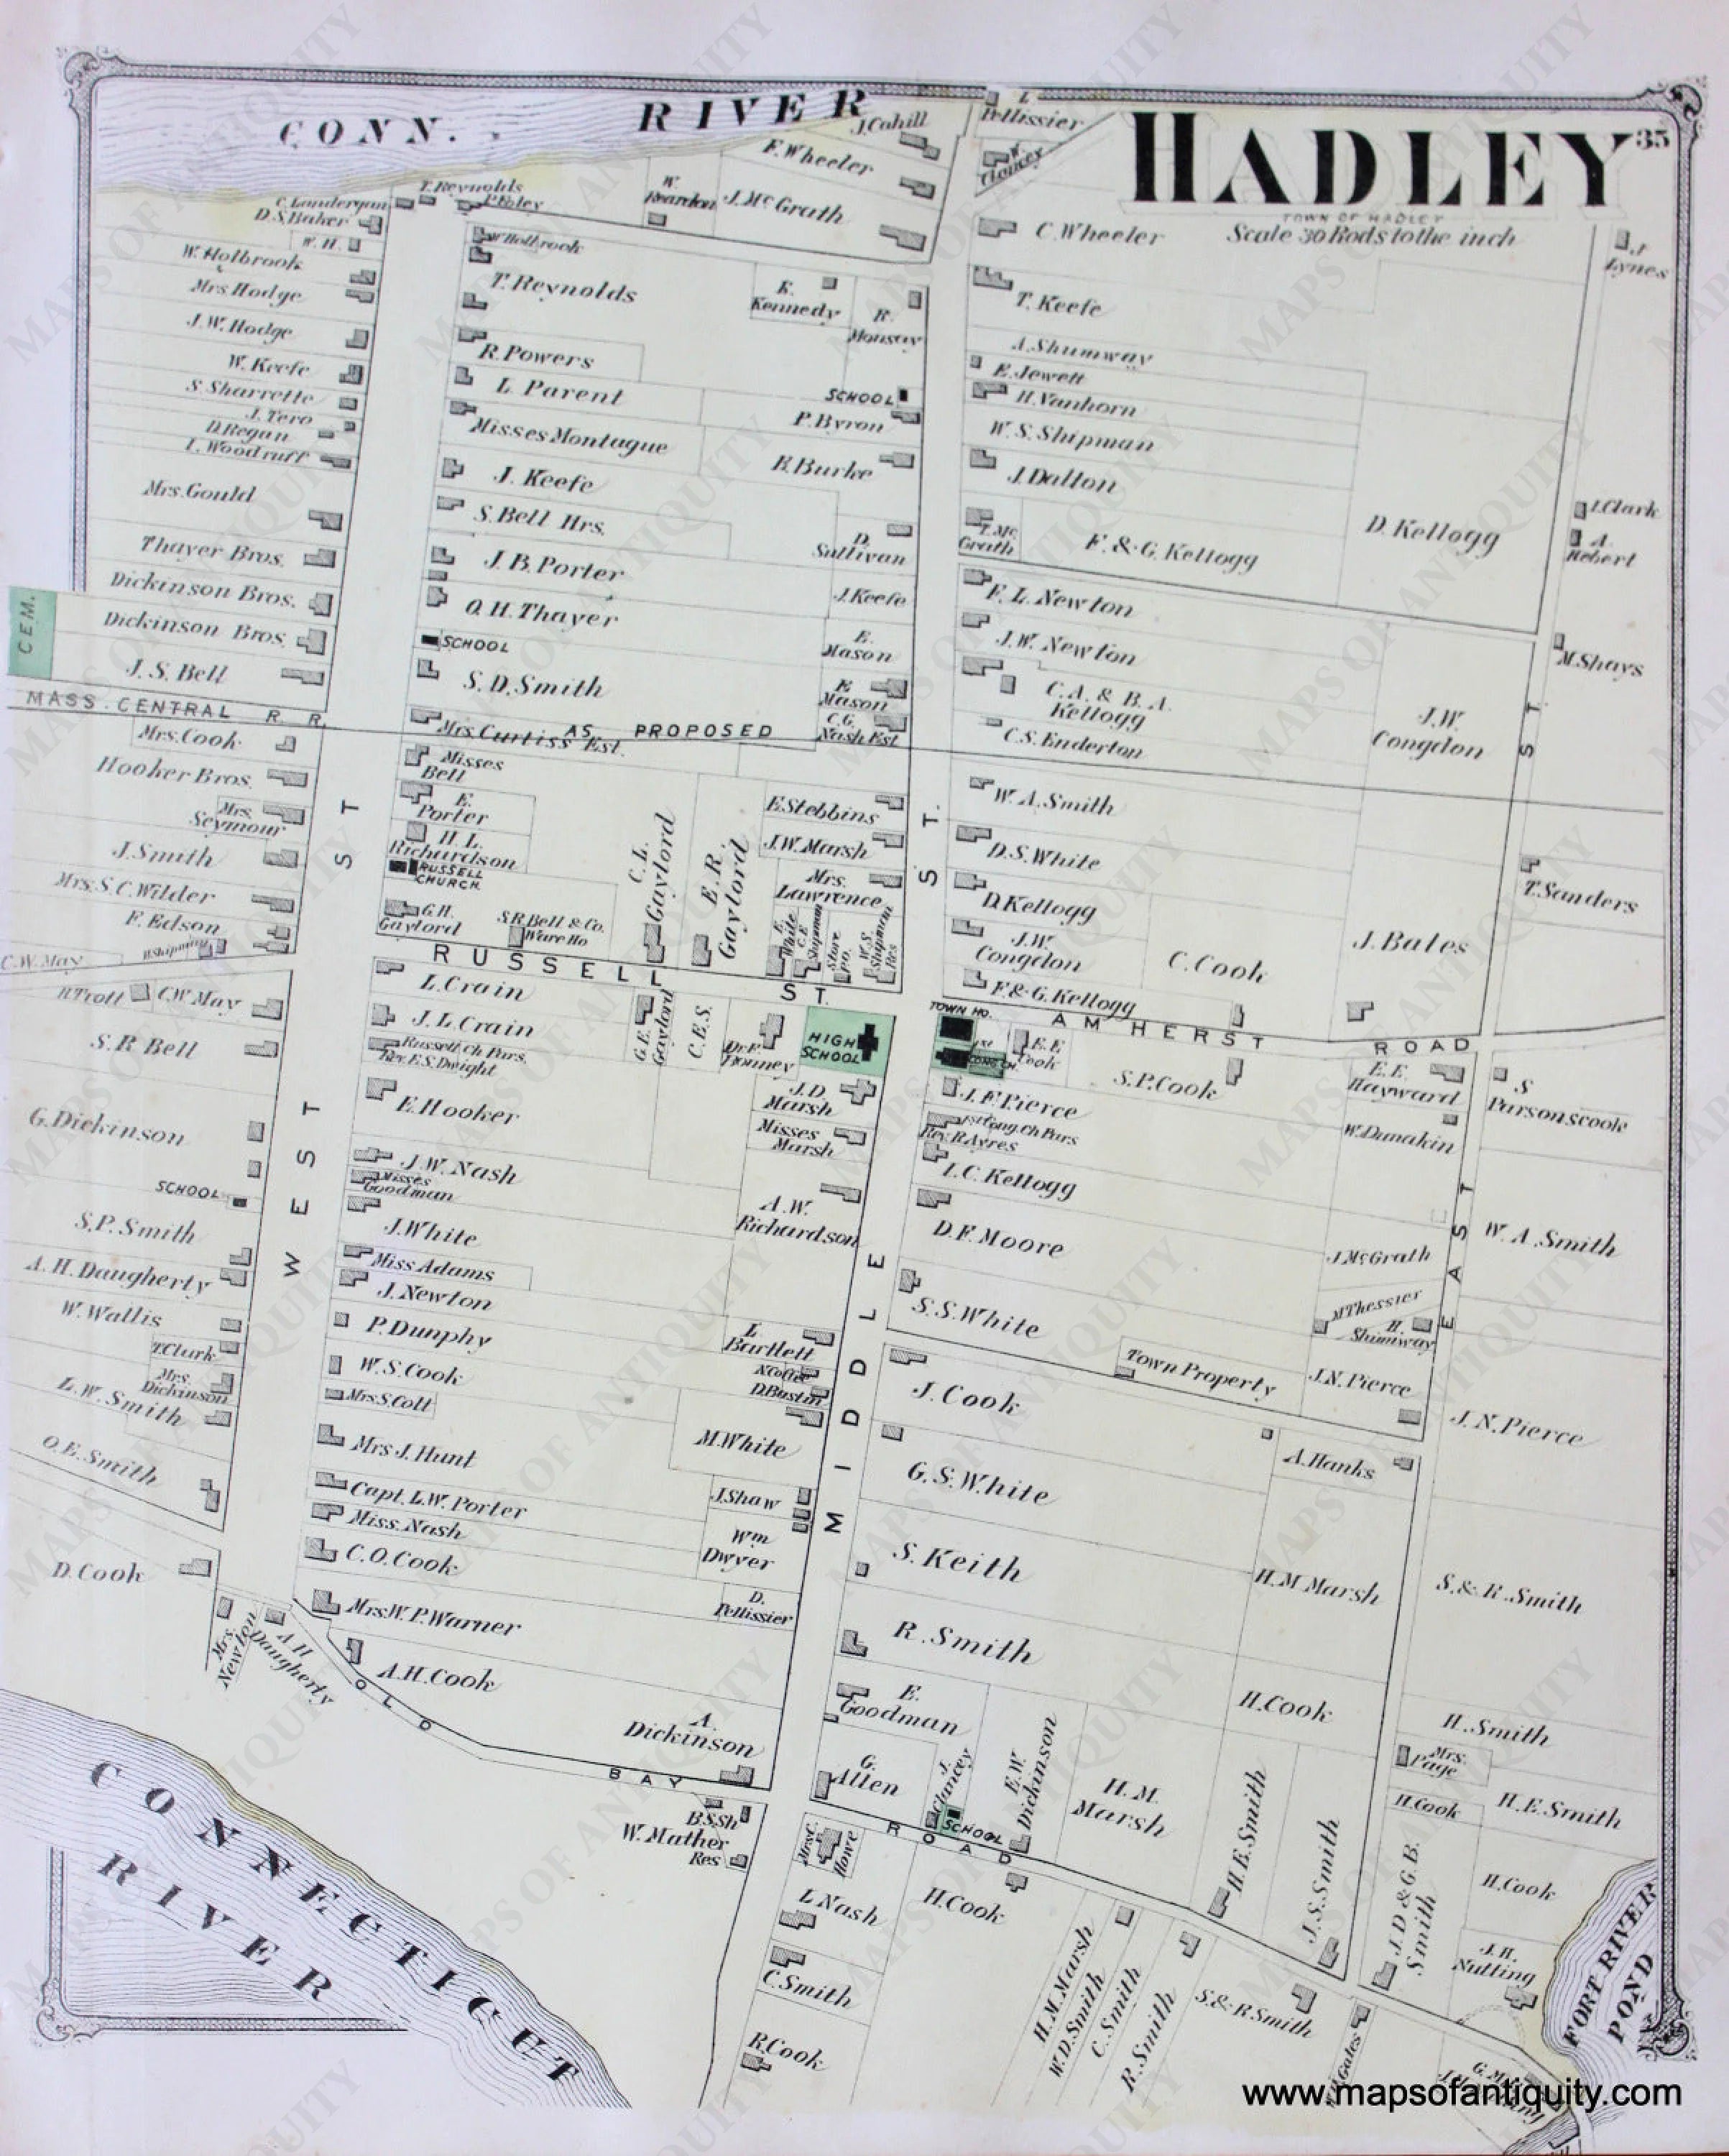 HADLEY
35
TOWN OF HADLEY
Scale 30 Rods to the inch
CONN. RIVER
J. Cahill
L.
Pellissier
F. Wheeler
W.
Clancey
T. Reynolds
P. Foley
C. Landergan
D.S. Baker
W. H.
W. Holbrook
Mrs. Hodge
J.W. Hodge
W. Keefe
S. Sharrette
J. Tero
D. Regan
L. Woodruff
Mrs. Gould
Thayer Bros.
Dickinson Bros.
Dickinson Bros.
J. S. Bell
CEM.
MASS. CENTRAL R. R.
AS PROPOSED
W.
Reardon
J. McGrath
W. Holbrook
T. Reynolds
K.
Kennedy
R.
R. Powers
L. Parent
SCHOOL
P. Byron
Misses Montague
R. Burke
J. Keefe
S. Bell Hrs.
D.
Sullivan
J. B. Porter
J. Keefe
O. H. Thayer
SCHOOL
E.
Mason
S. D. Smith
E.
Mason
C.G.
Nash Est.
Mrs. Curtiss Est.
C. Wheeler
T. Keefe
A. Shumway
E. Jewett
H. Vanhorn
W. S. Shipman
J. Dalton
T. Mc
Grath
F. & G. Kellogg
D. Kellogg
F. L. Newton
J. W. Newton
C. A. & B. A.
Kellogg
C. S. Enderton
J. W.
Congdon
J.
Lynes
I. Clark
A.
Hebert
M. Shays
Mrs. Cook
Hooker Bros.
Mrs.
Seymour
J. Smith
Mrs. S. C. Wilder
F. Edson
C. W. May
Misses
Bell
E.
Porter
H. L.
Richardson
RUSSELL
CHURCH
G.H.
Gaylord
S.R. Bell & Co.
Ware Ho
C. L.
Gaylord
E. R.
Gaylord
F. Stebbins
J.W. Marsh
Mrs.
Lawrence
E.
White
C.E.
Shipman
Store
P.O.
W.S.
Shipman
Res
W. A. Smith
D. S. White
D. Kellogg
J. W.
Congdon
F. & G. Kellogg
C. Cook
J. Bates
T. Sanders
RUSSELL ST.
AMHERST ROAD
WEST ST
MIDDLE ST.
EAST ST
H. Trott
C.W. May
S. R Bell
G. Dickinson
SCHOOL
S. P. Smith
A. H. Daugherty
W. Wallis
T. Clark
Mrs.
Dickinson
L. W. Smith
O. E. Smith
D. Cook
Mrs.
Newton
A. H
Daugherty
L. Crain
J. L. Crain
Russell Ch Pars.
Rev. E.S. Dwight
E. Hooker
G.E.
Gaylord
C.E.S.
Dr. F.
Bonney
HIGH
SCHOOL
J. D.
Marsh
Misses
Marsh
J. W. Nash
Misses
Goodman
J. White
A. W.
Richardson
Miss Adams
J. Newton
P. Dunphy
L.
Bartlett
W. S. Cook
D. Bustin
Mrs. S. Colt
M. White
Mrs J. Hunt
Capt. L. W. Porter
J. Shaw
Miss. Nash
Wm
Dwyer
C. O. Cook
D.
Pellissier
Mrs. W. P. Warner
A. H. Cook
A.
Dickinson
TOWN HO.
1st
CONG. CH.
E. E
Cook
S.P. Cook
J. F. Pierce
1st Cong. Ch Pars
Rev. R. Ayres
L. C. Kellogg
D. F. Moore
S. S. White
E. E.
Hayward
S
Parsonscook
W. Dunakin
J. McGrath
M Thessier
H.
Shumway
W. A. Smith
Town Property
J.N. Pierce
J. N. Pierce
J. Cook
A. Hanks
G. S. White
S. Keith
H. M Marsh
S. & R. Smith
R. Smith
H. Cook
E.
Goodman
H. Smith
G.
Allen
J.
Clancey
E.W.
Dickinson
H. M.
Marsh
H. E. Smith
J. S. Smith
Mrs.
Page
H. Cook
H. E. Smith
J. D & G. B.
Smith
H. Cook
J. H.
Nutting
SCHOOL
OLD BAY ROAD
B.S.Sh
W. Mather
Res
Mrs C.
Howe
L Nash
H. Cook
C. Smith
R. Cook
H. M. Marsh
W. D. Smith
C. Smith
R. Smith
S. & R Smith
Gates
CONNECTICUT
RIVER
FORT RIVER
POND
www.mapsofantiquity.com
MAPS OF ANTIQUITY